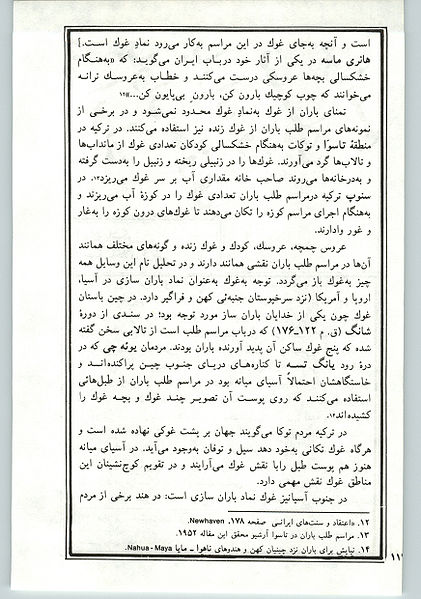 است و آنچه به‌جای غوك در این مراسم به‌کار می‌رود نمادِ غوك است.]
هانری ماسه در یکی از آثار خود درباب ایران می‌گوید: که «به‌هنگام
خشکسالی بچه‌ها عروسکی درست می‌کنند و خطاب به‌عروسك ترانه
می‌خوانند که چوب کوچیك بارون کن، بارون بی‌پایون کن...»۱۲
تمنای باران از غوك به‌نمادِ غوك محدود نمی‌شود و در برخی از
نمونه‌های مراسم طلب باران از غوك زنده نیز استفاده می‌کنند. در ترکیه در
منطقهٔ تاسوآ و توکات به‌هنگام خشکسالی کودکان تعدادی غوك از ماندابها
و تالاب‌ها گرد می‌آورند. غوك‌ها را در زنبیلی ریخته و زنبیل را به‌دست گرفته
و به‌درخانه‌ها می‌روند صاحب خانه مقداری آب بر سر غوك می‌ریزد۱۳. در
سنوپ ترکیه درمراسم طلب باران تعدادی غوك را در کوزهٔ آب می‌ریزند و
به‌هنگام اجرای مراسم کوزه را تکان می‌دهند تا غوك‌های درون کوزه را به‌غار
و غور وادارند.
عروس چمچه، عروسك، کودك و غوك زنده و گونه‌های مختلف همانند
آن‌ها در مراسم طلب باران نقشی همانند دارند و در تحلیل نام این وسایل همه
چیز به‌غوك باز می‌گردد. توجه به‌غوك به‌عنوان نماد باران سازی در آسیا،
اروپا و آمریکا (نزد سرخپوستان جنبه‌ئی کهن و فراگیر دارد. در چین باستان
غوك چون یکی از خدایان باران ساز مورد توجه بود؛ در سندی از دورهٔ
شانگ (ق. م ۱۲۲ـ۱۷۶) که درباب مراسم طلب است از تالابی سخن گفته
شده که پنج غوك ساکن آن پدید آورنده باران بودند. مردمان یوئه چی که در
درهٔ رود یانگ تسه تا کناره‌های دریای جنوب چین پراکنده‌اند و
خاستگاهشان احتمالاً آسیای میانه بود در مراسم طلب باران از طبل‌هائی
استفاده می‌کنند که روی پوست آن تصویر چند غوك و بچه غوك را
کشیده‌اند۱۴.
در ترکیه مردم توکا می‌گویند جهان بر پشت غوکی نهاده شده است و
هرگاه غوك تکانی به‌خود دهد سیل و توفان به‌وجود می‌آید. در آسیای میانه
هنوز هم پوست طبل رابا نقش غوك می‌آرایند و در تقویم کوچ‌نشینان این
مناطق غوك نقش مهمی دارد.
در جنوب آسیانیز غوك نماد باران سازی است: در هند برخی از مردم
۱۲. «اعتقاد و سنت‌های ایرانی صفحه ۱۷۸، Newhaven.
۱۳. مراسم طلب باران در تاسوآ آرشیو محقق این مقاله ۱۹۵۲.
۱۴. نیایش برای باران نزد چینیان کهن و هندوهای ناهوا ـ مایا Nahua - Maya.